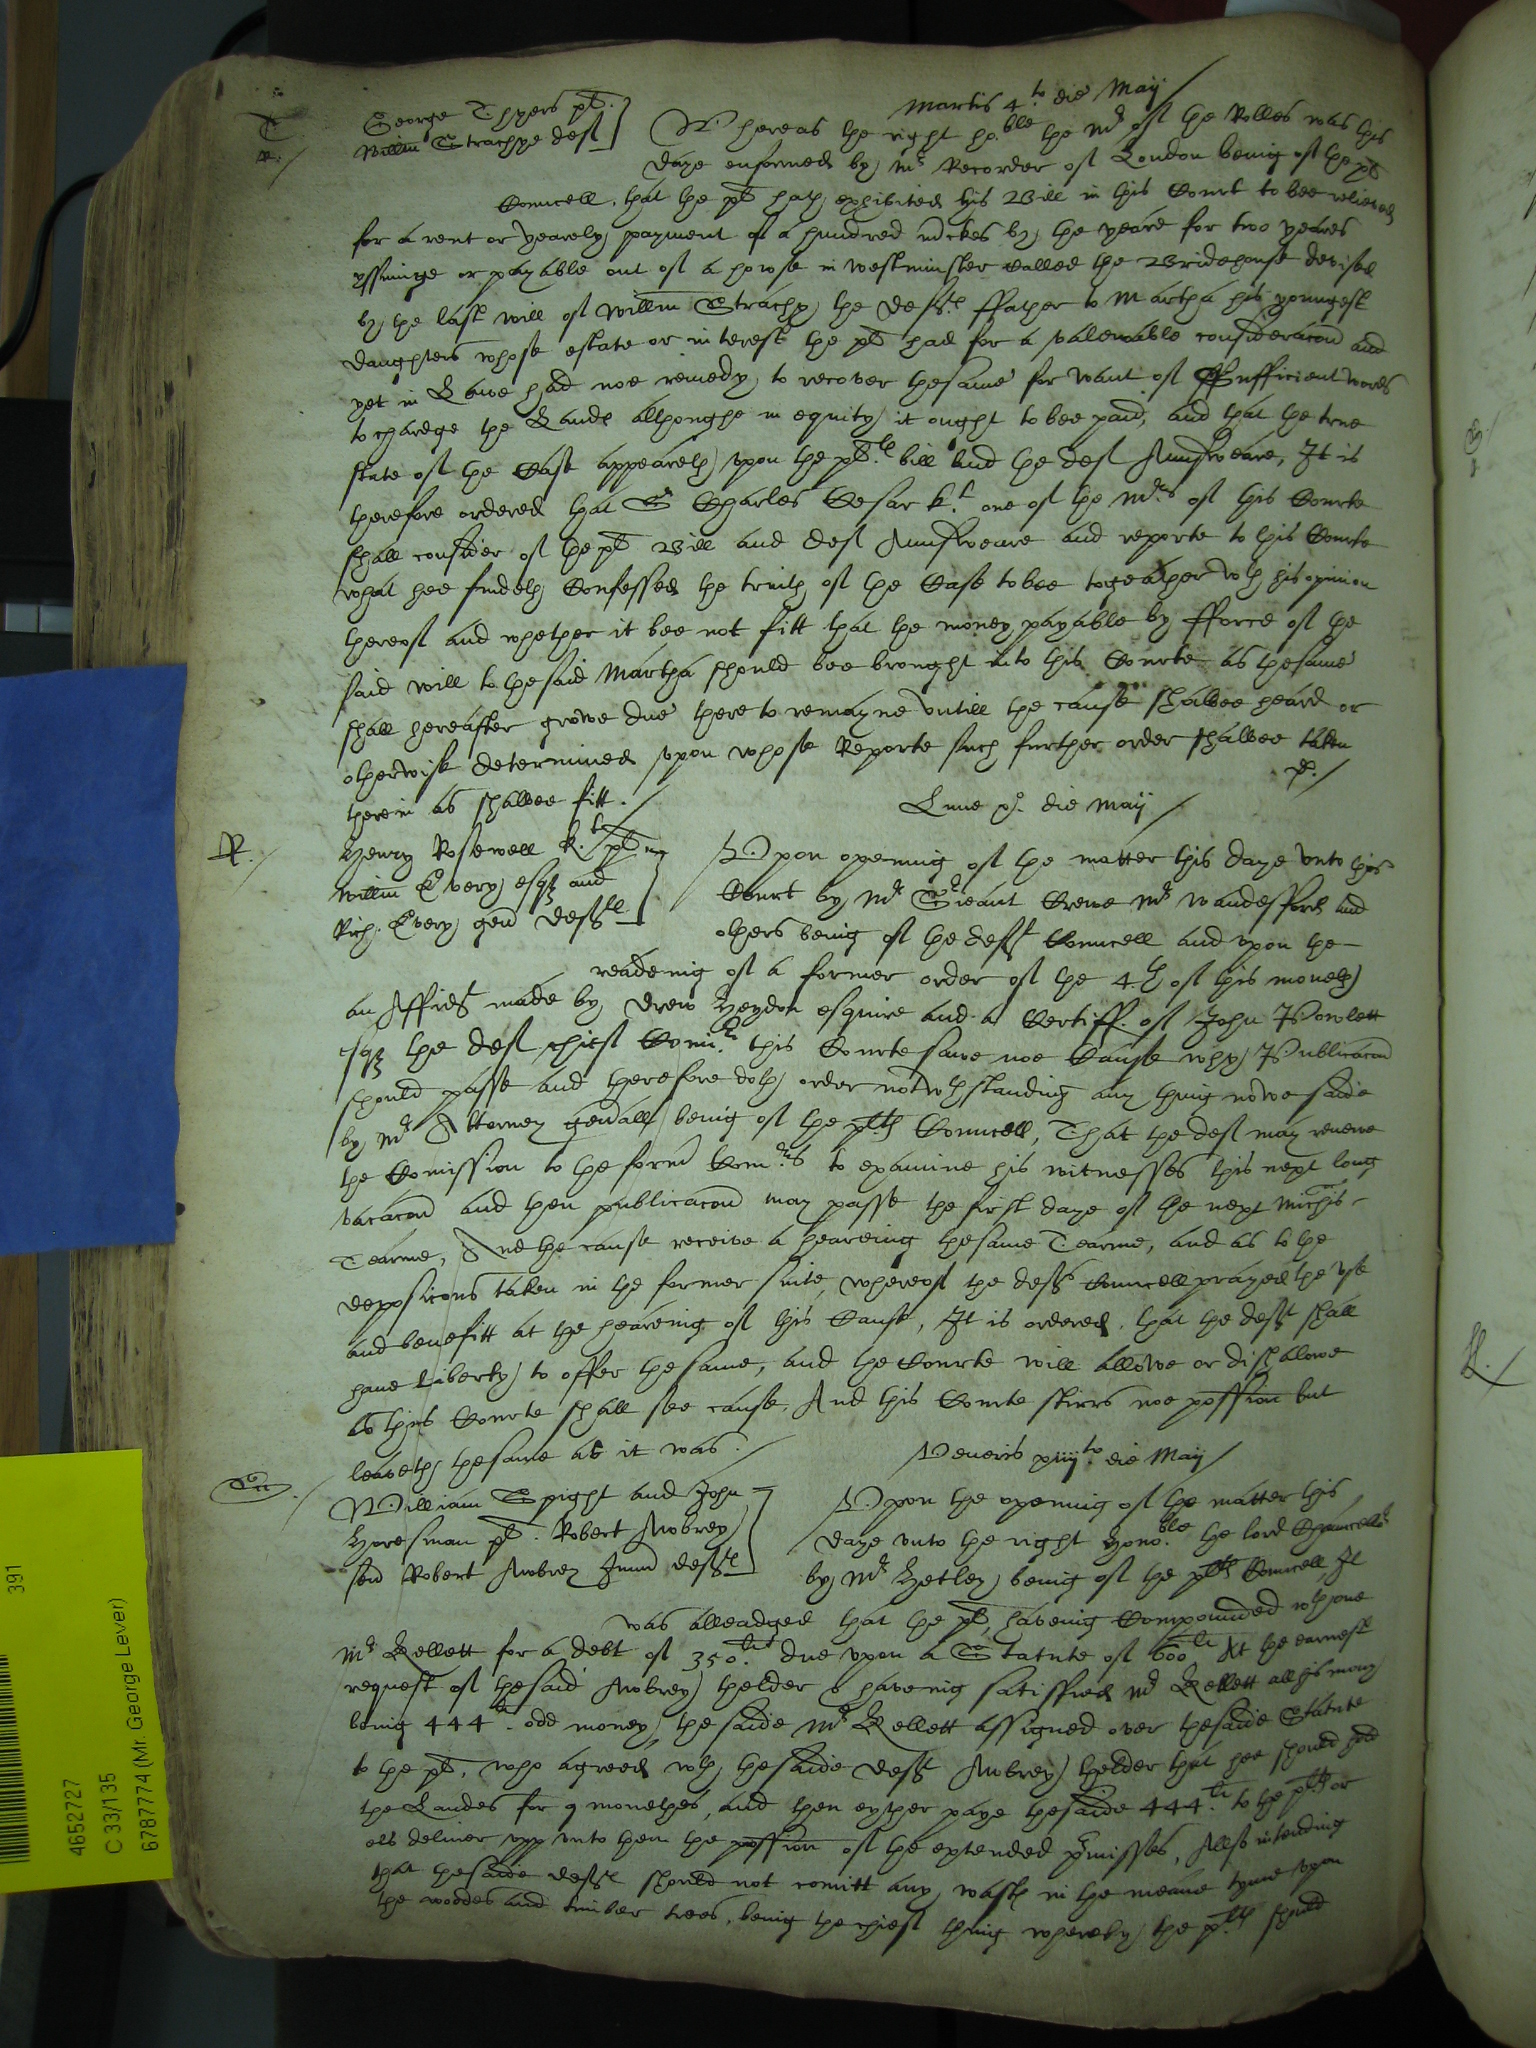 Martis 4.to die Maij
T. George Thyers pt.
R. Willm Strachye deft
Whereas the right ho:ble the Mr of the Rolles was this
daye enformed by Mr Recorder of London being of the pt
Councell, that the pt hath exhibited his Bill in this Court to bee relieved
for a rent or yearely payment of a hundred mrkes by the yeare for two yeares
yssuinge or payable out of a howse in westminster called the Bridehouse devised
by the last will of Willm Strachy the deftes ffather to Martha his youngest
daughters whose estate or interest the pt had for a valewable consideracon and
yet in Lawe had noe remedy to recover thesame for want of Sufficient words
to chardge the Lands allthoughe in equity it ought to bee paid, and that the true
state of the Case appeareth upon the pltes bill and the deft Aunsweare, It is
therefore ordered that Sr Charles Cesar kt. one of the Mrs of this Courte
shall consider of the pt Bill and deft Aunsweare and reporte to this Courte
what hee findeth Confessed the truith of the Case to bee togeather wth his opinion
thereof and whether it bee not fitt that the money payable by fforce of the
said will to thesaid Martha should bee brought into this Courte as thesame
shall hereafter growe due there to remayne untill the cause shalbee heard or
otherwise determined upon whose Reporte such further order shalbee taken
therein as shalbee fitt.
p.
Lune die Maij
R. Henry Rosewell k.t pt
Willm Every esqz and
Rich. Every gen defts
Upon opening of the matter this daye unto this
Court by Mr Srieant Crewe Mr Wandesford and
others being of the defts Councell and upon the
readeing of a former order of the 4th of this moneth
an Affidt made by Drew Heydon esquire and a Certiff. of John Powlett
esqz the deft chief Comr. this Courte sawe noe Cause why Publicacon
should passe and therefore doth order notwthstanding any thing nowe saide
by Mr Attorney generall being of the plts Councell, That the deft may renewe
the Comission to the formr Comrs to examine his witnesses this next long
vacacon and then publicacon may passe the first daye of the next Michis
Tearme, And the cause receive a heareing thesame Tearme, and as to the
depposicons taken in the former suite, whereof the defts Councell prayed the use
and benefitt at the heareing of this Cause, It is ordered, that the deft shall
have Liberty to offer thesame, and the Courte will allowe or disalowe
as this Courte shall see cause, And this Courte stirrs noe possion but
leaveth thesame as it was.
Veneris xiiijto. die Maij
William Spight and John
Horesman pt. Robert Awbrey
sen Robert Awbrey Junr defts
Upon the opening of the matter this
daye unto the right Hono:ble the lord Chancellor
by Mr Hetley being of the plts Councell, It
was alleadged that the pt, haveing Compounded wth one
Mr Kellett for a debt of 350.li due upon a Statute of 600li At the earnest
request of thesaid Awbrey thelder & haveing satisffied Mr Kellett all his mony
being 444li. odd money, the saide Mr Kellett assigned over thesaide Statute
to the pt, who agreed wth thesaide deft Awbrey thelder that hee should hold
the Landes for 9 monethes, and then eyther paye thesaide 444.li to the plts or
els deliver upp unto them the possion of the extended prmisses, Allso intending
that thesaide defts should not comitt any wast in the meane tyme upon
the woodes and timber trees, being the chiefe thing whereby the plts should
391
4652727
C 33/135
6787774 (Mr. George Lever)